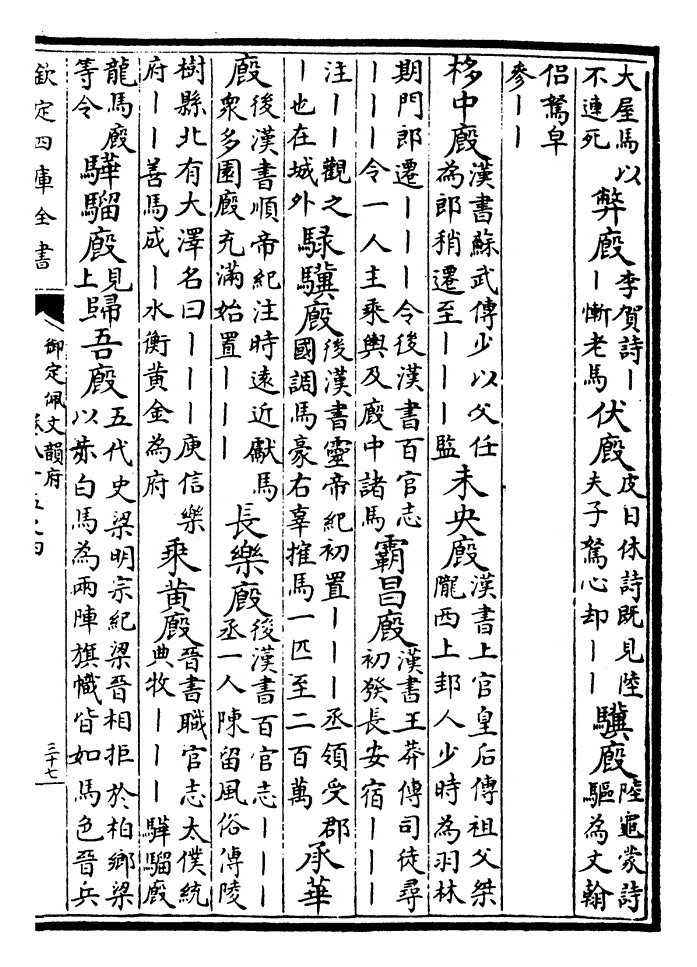 大屋馬以
不連死
弊廐
李賀詩丨
丨慚老馬
伏廐
皮日休詩既見陸
夫子駑心却丨丨
驥廐
陸龜蒙詩
驅為文翰
侣駑皁
參丨丨
栘中廐
漢書蘇武傳少以父任
為郎稍遷至丨丨丨監
未央廐
漢書上官皇后傳祖父桀
隴西上邽人少時為羽林
期門郎遷丨丨丨令後漢書百官志
丨丨丨令一人主乘輿及廐中諸馬
霸昌廐
漢書王莽傳司徒尋
初發長安宿丨丨丨
注丨丨觀之
丨也在城外
騄驥廐
後漢書靈帝紀初置丨丨丨丞領受郡
國調馬豪右辜搉馬一匹至二百萬
承華
廐
後漢書順帝紀注時遠近獻馬
衆多園廐充滿始置丨丨丨
長樂廐
後漢書百官志丨丨丨
丞一人陳留風俗傳陵
樹縣北有大澤名曰丨丨丨庾信樂
府丨丨善馬成丨水衡黄金為府
乘黄廐
晉書職官志太僕統
典牧丨丨丨驊騮廐
龍馬廐
等令
驊騮廐
見
上
歸吾廐
五代史梁明宗紀梁晉相拒於柏鄉梁
以赤白馬為兩陣旗幟皆如馬色晉兵
欽定四庫全書
御定佩文韻府
三十七